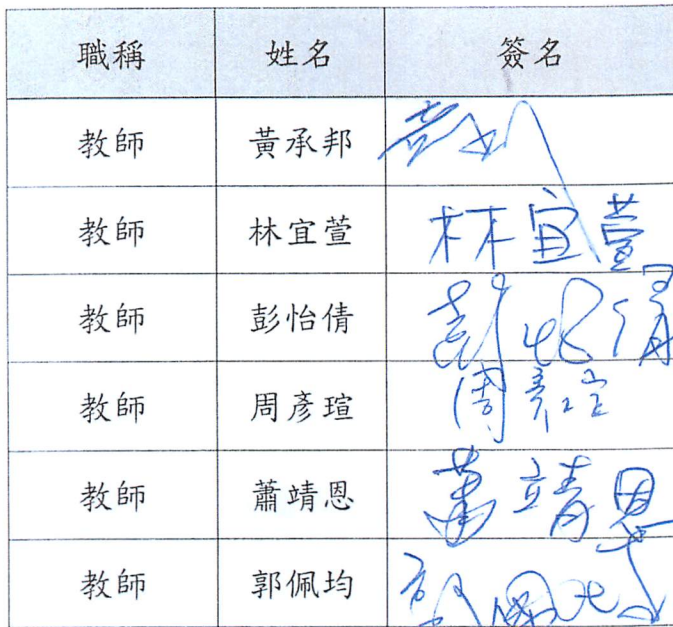 職稱 姓名 簽名
教師 黃承邦
教師 林宜萱 林宜萱
教師 彭怡倩 彭怡倩
教師 周彥瑄 周彥瑄
教師 蕭靖恩 蕭靖恩
教師 郭佩均